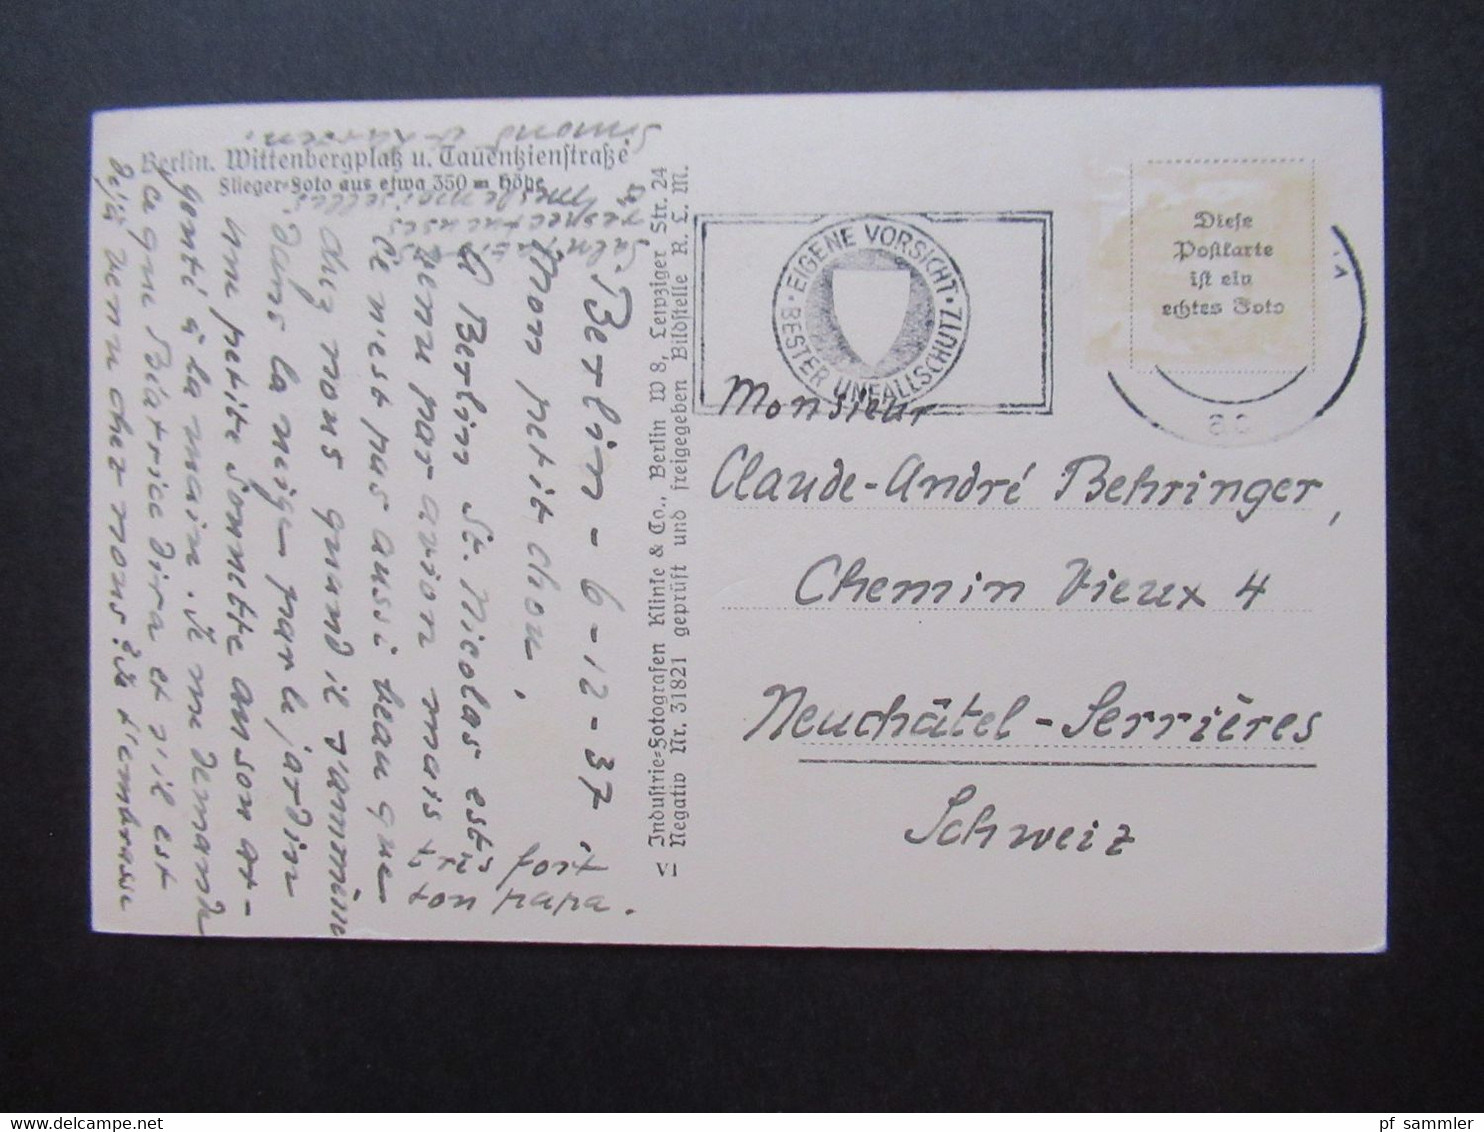 Berlin. Wittenbergplatz u. Tauentzienstraße
Flieger-Foto aus etwa 350 m Höhe
Berlin - 6-12-37.
Mon petit chou,
A Berlin St. Nicolas est
venu par avion mais
ce n'est pas aussi beau que
chez nous quand il
dans la neige par le jardin
une petite sonnette
à la main. Je me demande
ce que Béatrice dira et s'il est
déjà venu chez nous? Je t'embrasse
très fort
ton papa.
Salutations
respectueuses
Mesdemoiselles
Simond
Industrie-Fotografen Klinke & Co., Berlin W 8, Leipziger Str. 24
VI Negativ Nr. 31821 geprüft und freigegeben Bildstelle R. L. M.
EIGENE VORSICHT · BESTER UNFALLSCHUTZ ·
Diese
Postkarte
ist ein
echtes Foto
Monsieur
Claude-André Behringer,
Chemin Vieux 4
Neuchâtel-Serrières
Schweiz
pf sammler
www.delcampe.net